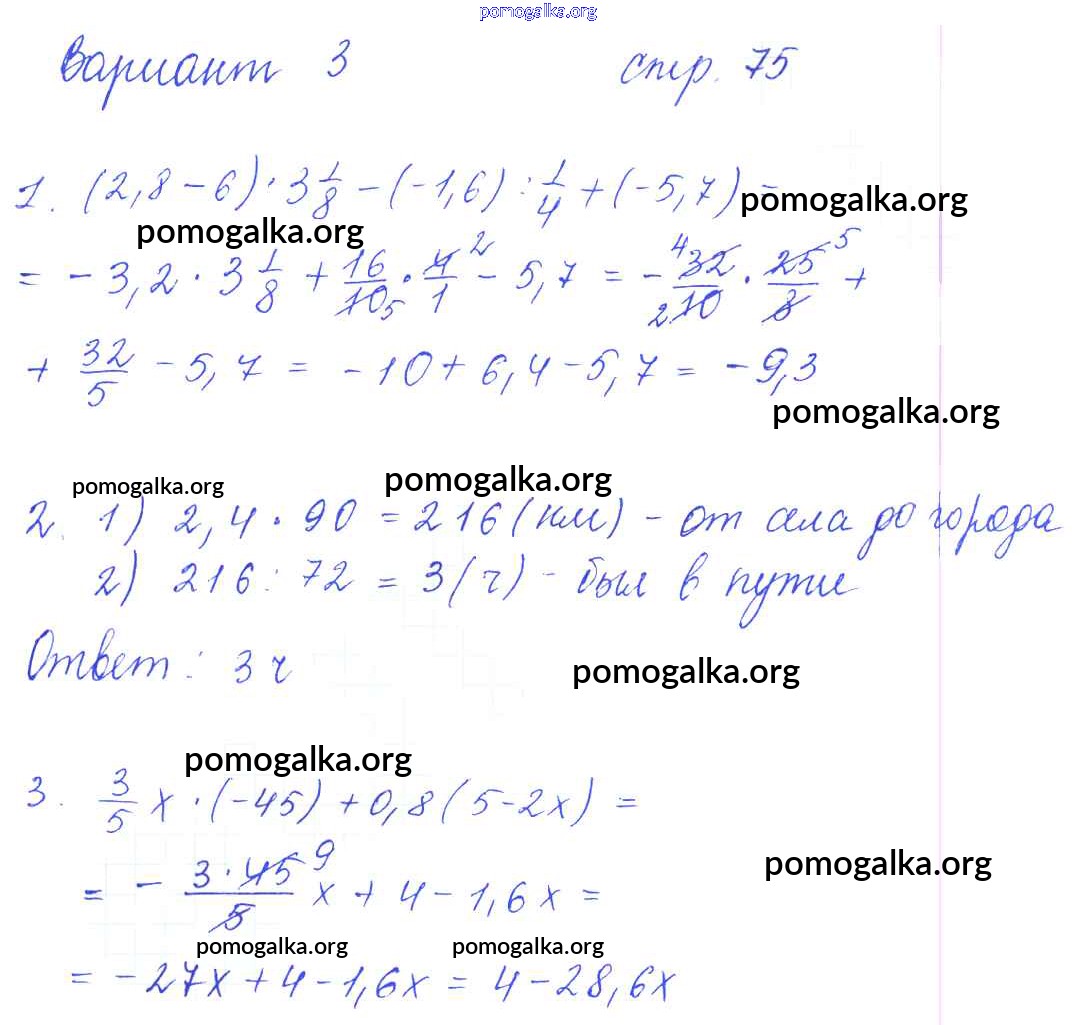 pomogalka.org
Вариант 3 стр. 75
1. (2,8 - 6) · 3 1/8 - (-1,6) : 1/4 + (-5,7) = pomogalka.org
pomogalka.org
= - 3,2 · 3 1/8 + 16/10 5 · 4 2/1 - 5,7 = - 4 32/2 10 · 25 5/8 +
+ 32/5 - 5,7 = - 10 + 6,4 - 5,7 = - 9,3
pomogalka.org
pomogalka.org pomogalka.org
2. 1) 2,4 · 90 = 216 (км) - от села до города
2) 216 : 72 = 3 (ч) - был в пути
Ответ: 3 ч
pomogalka.org
pomogalka.org
3. 3/5 x · (-45) + 0,8 (5 - 2x) =
pomogalka.org
= - 3 · 45 9/5 x + 4 - 1,6x =
pomogalka.org pomogalka.org
= - 27x + 4 - 1,6x = 4 - 28,6x